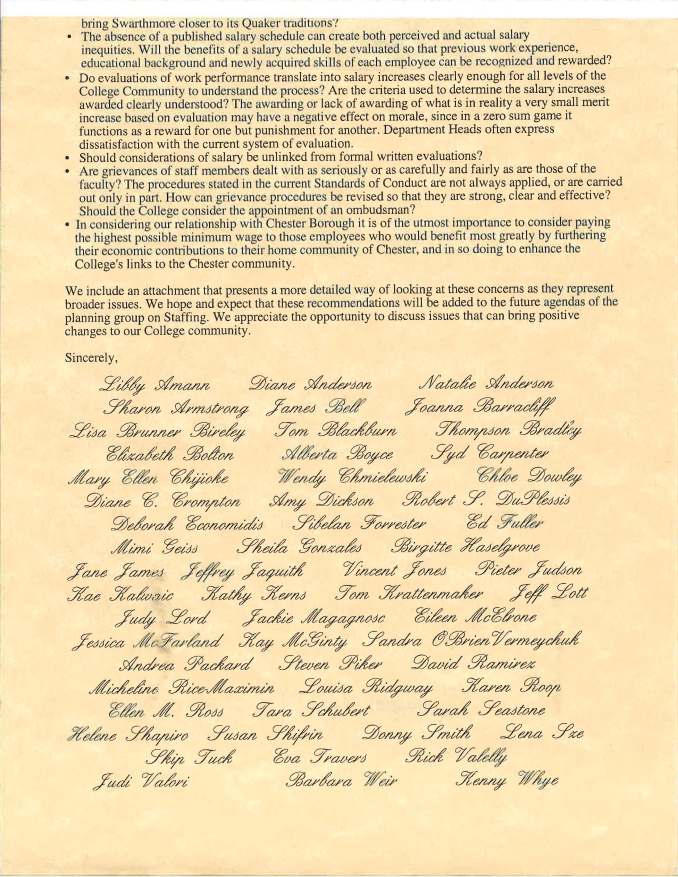 bring Swarthmore closer to its Quaker traditions?
• The absence of a published salary schedule can create both perceived and actual salary
inequities. Will the benefits of a salary schedule be evaluated so that previous work experience,
educational background and newly acquired skills of each employee can be recognized and rewarded?
• Do evaluations of work performance translate into salary increases clearly enough for all levels of the
College Community to understand the process? Are the criteria used to determine the salary increases
awarded clearly understood? The awarding or lack of awarding of what is in reality a very small merit
increase based on evaluation may have a negative effect on morale, since in a zero sum game it
functions as a reward for one but punishment for another. Department Heads often express
dissatisfaction with the current system of evaluation.
• Should considerations of salary be unlinked from formal written evaluations?
• Are grievances of staff members dealt with as seriously or as carefully and fairly as are those of the
faculty? The procedures stated in the current Standards of Conduct are not always applied, or are carried
out only in part. How can grievance procedures be revised so that they are strong, clear and effective?
Should the College consider the appointment of an ombudsman?
• In considering our relationship with Chester Borough it is of the utmost importance to consider paying
the highest possible minimum wage to those employees who would benefit most greatly by furthering
their economic contributions to their home community of Chester, and in so doing to enhance the
College's links to the Chester community.
We include an attachment that presents a more detailed way of looking at these concerns as they represent
broader issues. We hope and expect that these recommendations will be added to the future agendas of the
planning group on Staffing. We appreciate the opportunity to discuss issues that can bring positive
changes to our College community.
Sincerely,
Libby Amann Diane Anderson Natalie Anderson
Sharon Armstrong James Bell Joanna Barracliff
Lisa Brunner Bireley Tom Blackburn Thompson Bradley
Elizabeth Bolton Alberta Boyce Syd Carpenter
Mary Ellen Chijioke Wendy Chmielewski Chloe Dowley
Diane C. Crompton Amy Dickson Robert S. DuPlessis
Deborah Economidis Sibelan Forrester Ed Fuller
Mimi Geiss Sheila Gonzales Birgitte Haselgrove
Jane James Jeffrey Jaquith Vincent Jones Pieter Judson
Kae Kalwaic Kathy Kerns Tom Krattenmaker Jeff Lott
Judy Lord Jackie Magagnosc Eileen McElrone
Jessica McFarland Kay McGinty Sandra O'BrienVermeychuk
Andrea Packard Steven Piker David Ramirez
Micheline RiceMaximin Louisa Ridgway Karen Roop
Ellen M. Ross Tara Schubert Sarah Seastone
Helene Shapiro Susan Shifrin Donny Smith Lena Sze
Skip Tuck Eva Travers Rick Valelly
Judi Valori Barbara Weir Kenny Whye